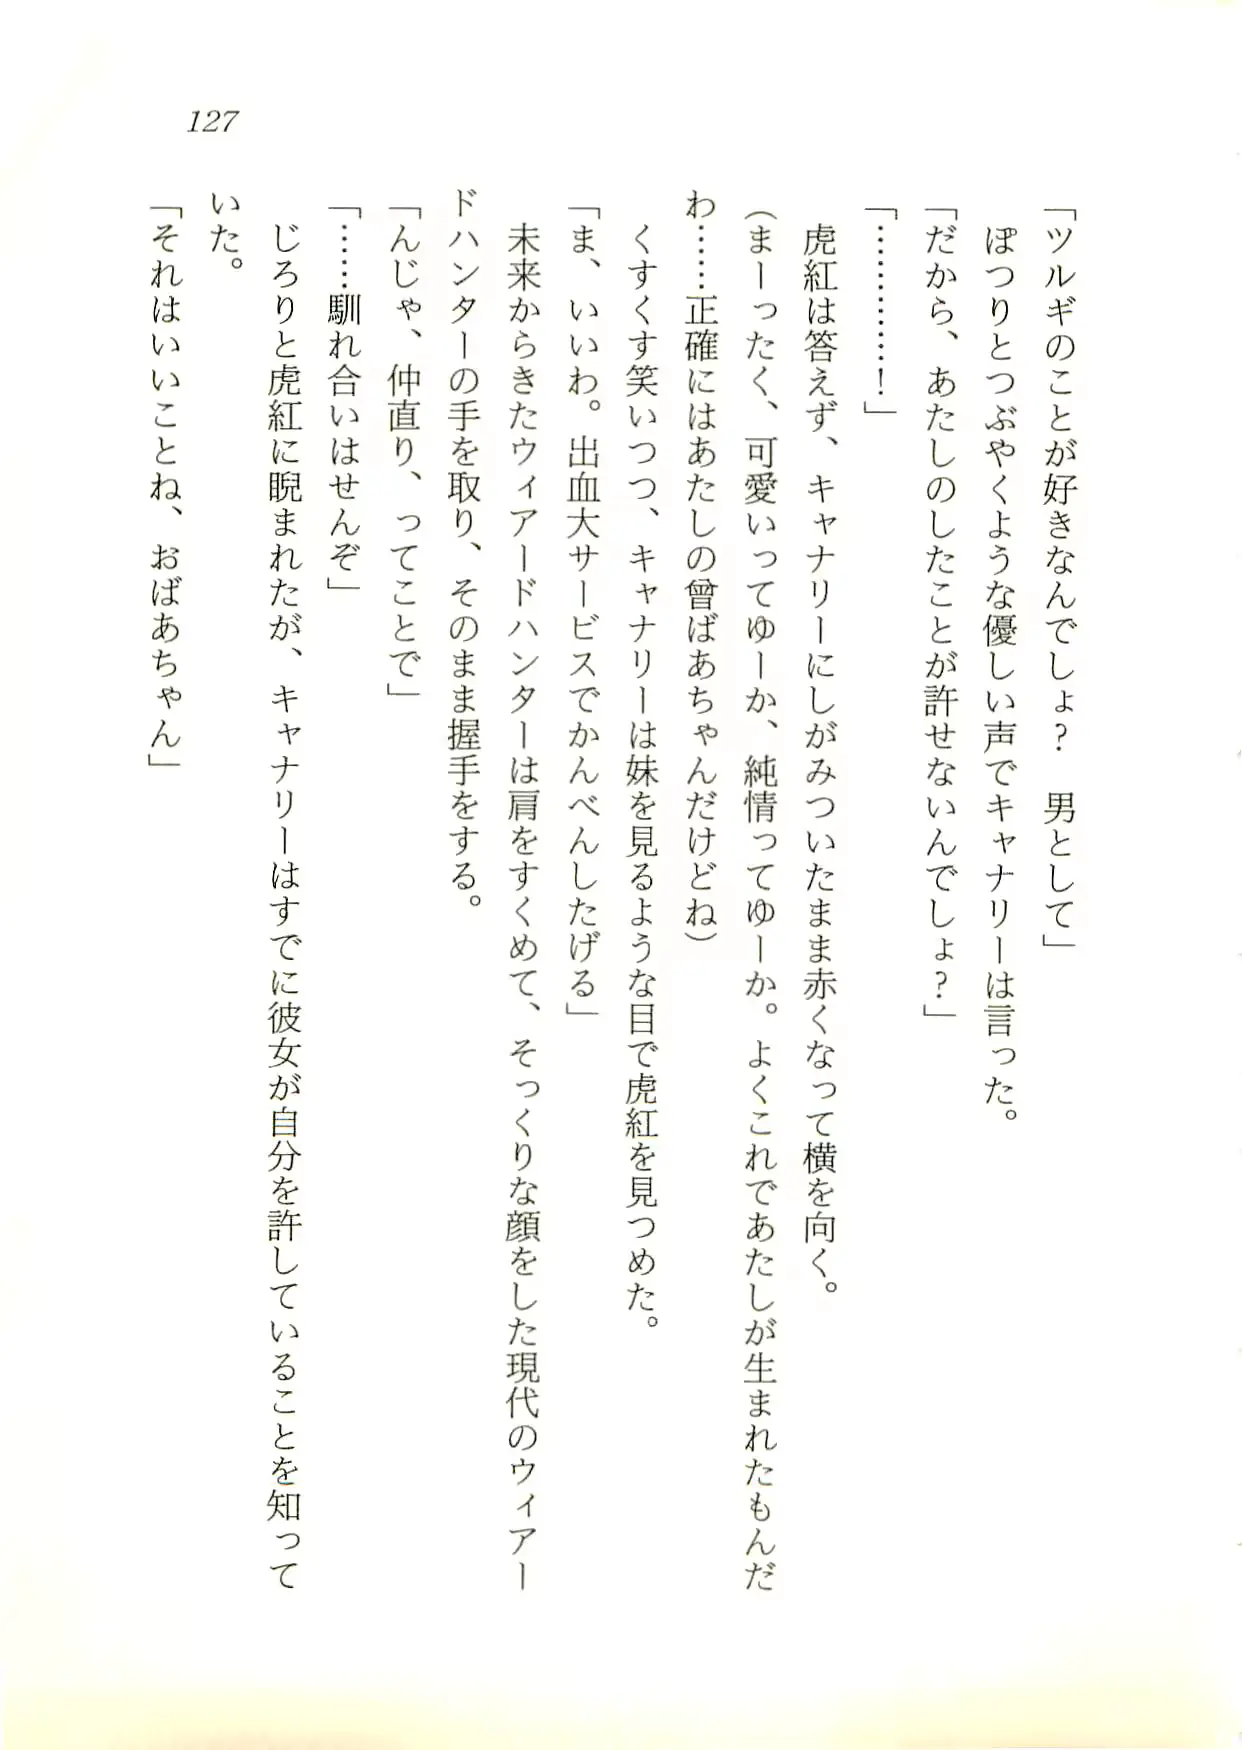 127
「ツルギのことが好きなんでしょ？　男として」
　ぽつりとつぶやくような優しい声でキャナリーは言った。
「だから、あたしのしたことが許せないんでしょ？」
「…………！」
　虎紅は答えず、キャナリーにしがみついたまま赤くなって横を向く。
（まーったく、可愛いってゆーか、純情ってゆーか。よくこれであたしが生まれたもんだ
わ……正確にはあたしの曾ばあちゃんだけどね）
　くすくす笑いつつ、キャナリーは妹を見るような目で虎紅を見つめた。
「ま、いいわ。出血大サービスでかんべんしたげる」
　未来からきたウィアードハンターは肩をすくめて、そっくりな顔をした現代のウィアー
ドハンターの手を取り、そのまま握手をする。
「んじゃ、仲直り、ってことで」
「……馴れ合いはせんぞ」
　じろりと虎紅に睨まれたが、キャナリーはすでに彼女が自分を許していることを知って
いた。
「それはいいことね、おばあちゃん」